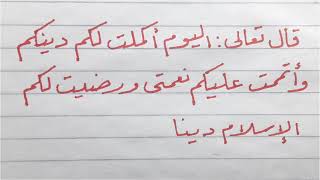 قال تعالى: اليوم أكملت لكم دينكم
وأتممت عليكم نعمتى ورضيت لكم
الإسلام دينا